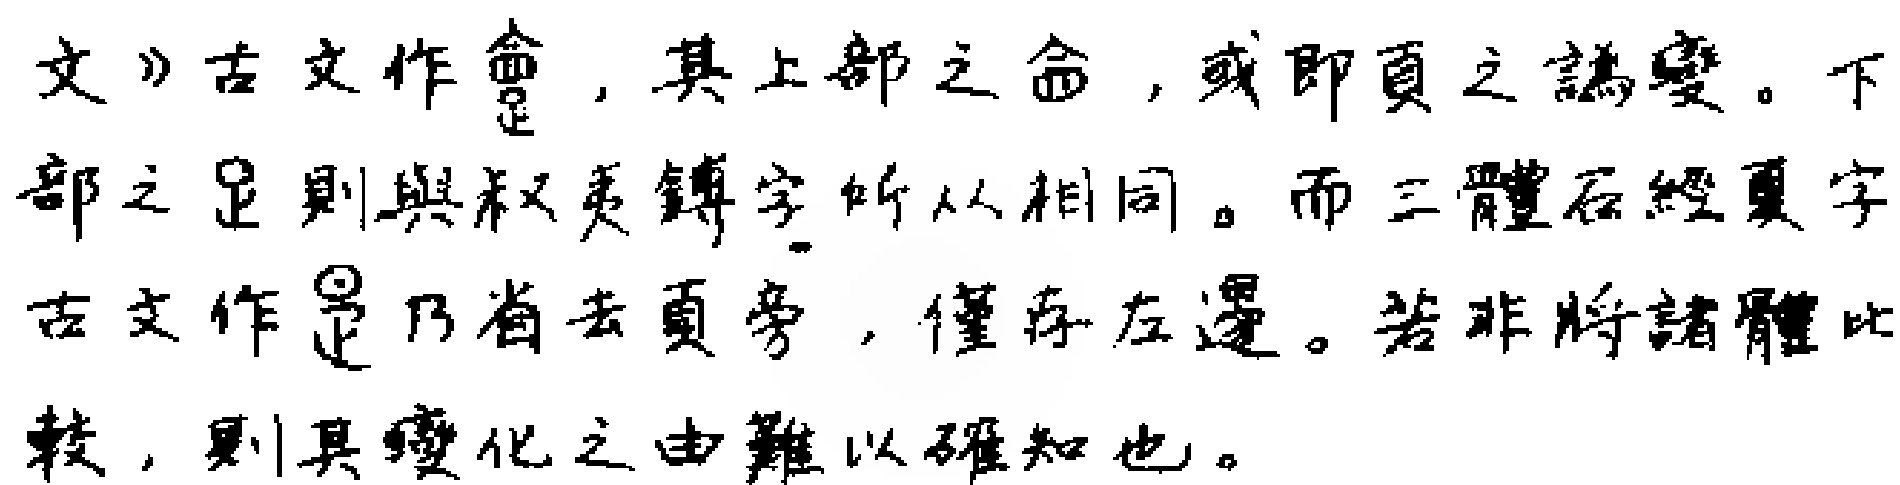 文》古文作，其上部之，或即頁之譌變。下
部之㫐則與叔夷鎛字所从相同。而三體石經夏字
古文作乃省去頁旁，僅存左邊。若非將諸體比
較，則其變化之由難以確知也。